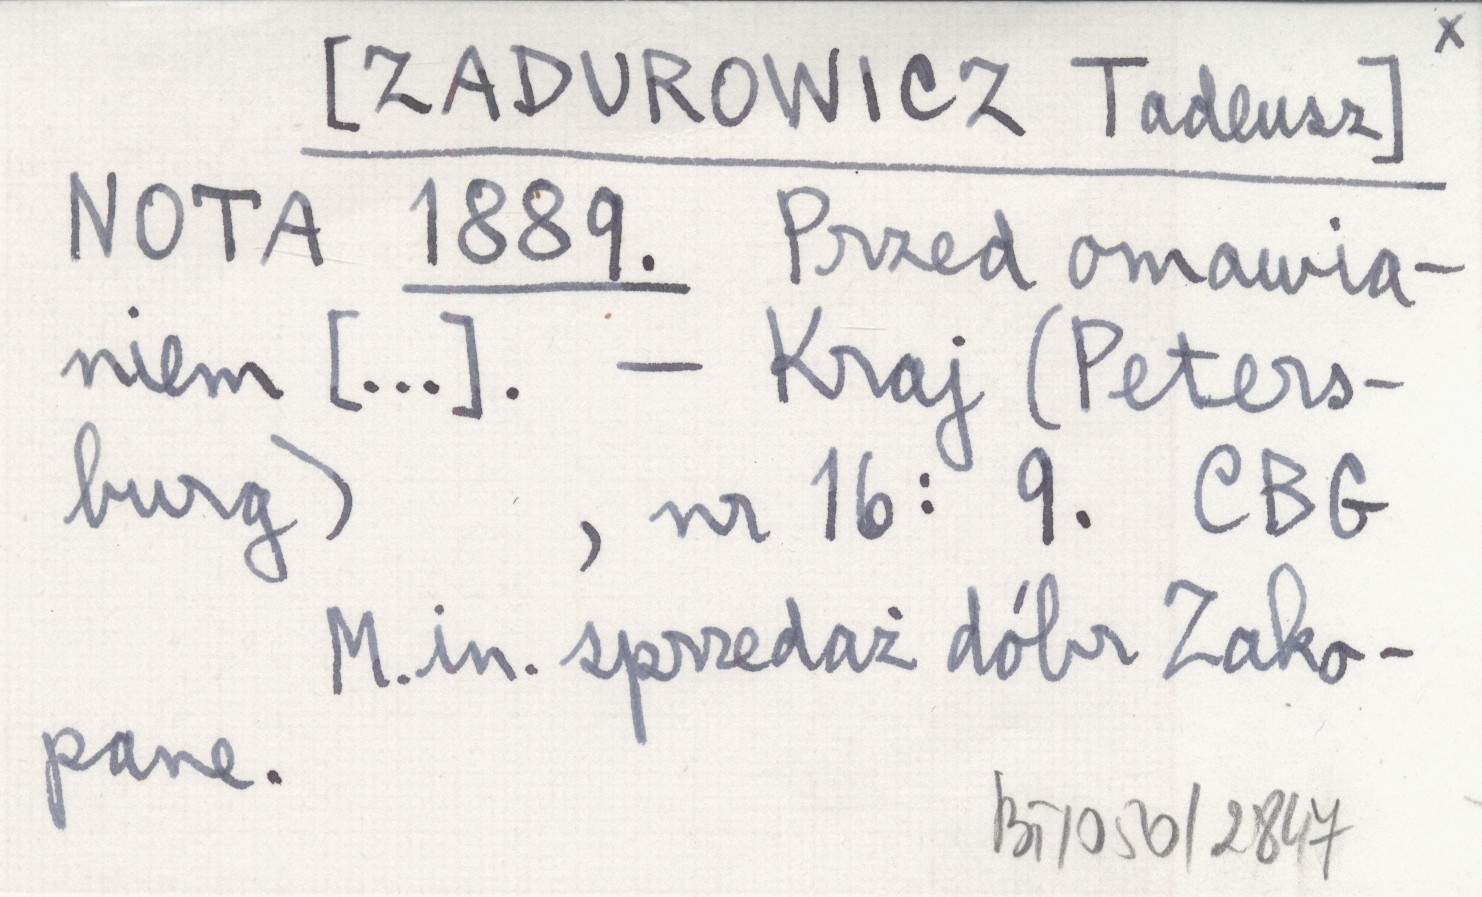 x
[ZADUROWICZ Tadeusz]
NOTA 1889. Przed omawia-
niem [...]. — Kraj (Peters-
burg) , nr 16: 9. CBG
M.in. sprzedaż dóbr Zako-
pane.
BT/050/2847